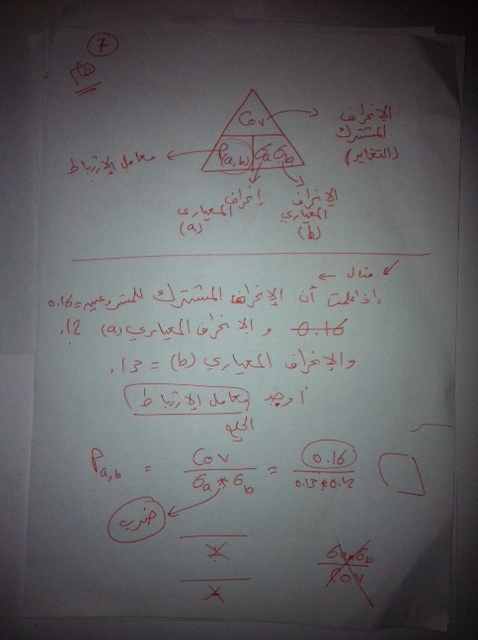 7
هام
Cov
الإنحراف
المشترك
(التغاير)
P(a,b) σa σb
معامل الإرتباط
إنحراف
المعياري
(a)
الإنحراف
المعياري
(b)
مثال
إذا علمت أن الإنحراف المشترك للمشروعين = 0.16
0.16 و الانحراف المعياري (a)
والإنحراف المعياري (b) =
أوجد معامل الإرتباط
الحل
Pa,b = Cov / σa * σb = 0.16 / 0.13*0.12
ضرب
σa*σb
Cov